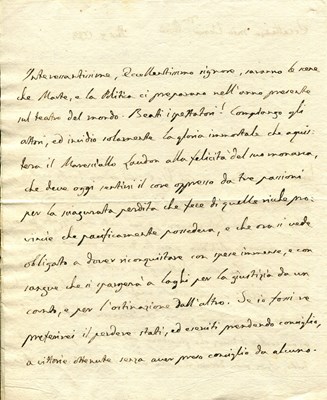 Interessantissime, Eccellentissimo signore, saranno le scene
che Marte, e la Politica ci preparano nell'anno presente
sul teatro del mondo. Beati i spettatori! Compiango gli
attori, ed invidio solamente la gloria immortale che aquis:
terà il Maresciallo Laudon alla felicità del suo monarca,
che deve oggi sentirsi il core oppresso da tre passioni
per la sciagurata perdita che fece di quelle ricche pro:
vincie che pacificamente possedeva, e che ora si vede
obligatto a dover riconquistare con spese immense, e con
sangue che si spargerà a laghi per la giustizia da un
canto, e per l'ostinazione dall'altro. Se io fossi re
preferirei il perdere stati, ed eserciti prendendo consiglio,
a vittorie ottenute senza aver preso consiglio da alcuno.